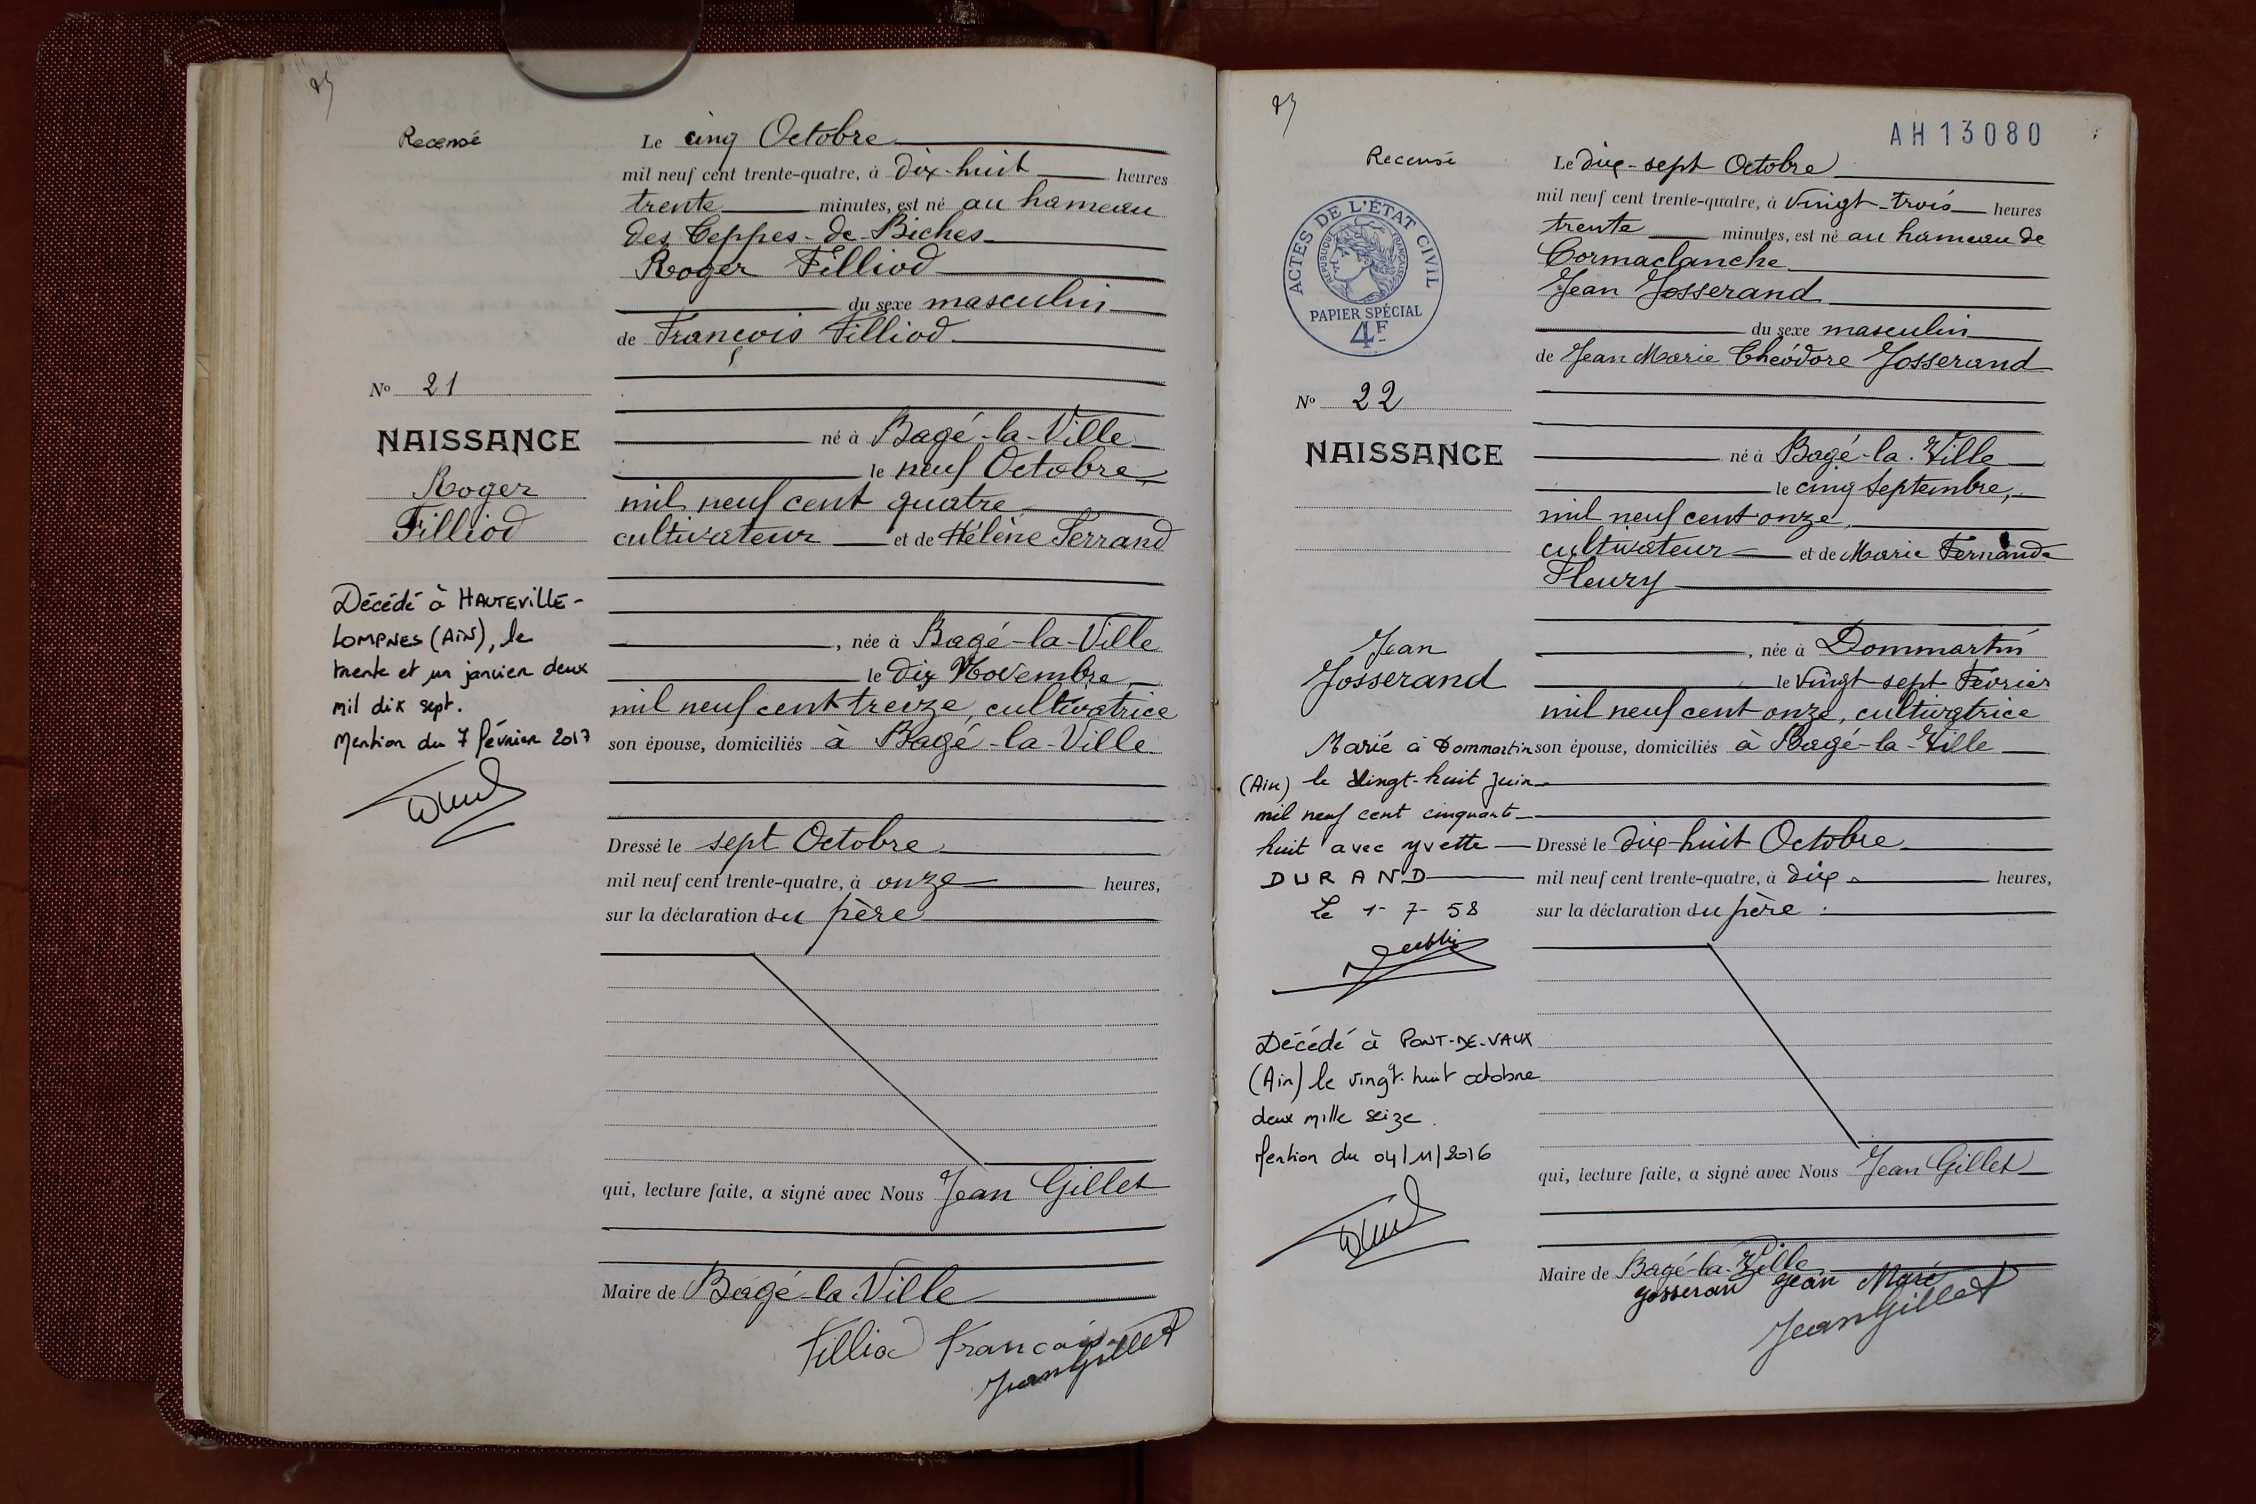 Recensé
Le cinq Octobre
mil neuf cent trente-quatre, à dix-huit heures
trente minutes, est né au hameau
des Teppes-de-Biches
Roger Filliod
du sexe masculin
de François Filliod
né à Bagé-la-Ville
le neuf Octobre
mil neuf cent quatre
cultivateur et de Hélène Ferrand
, née à Bagé-la-Ville
le dix Novembre
mil neuf cent treize, cultivatrice
son épouse, domiciliés à Bagé-la-Ville
Dressé le sept Octobre
mil neuf cent trente-quatre, à onze heures,
sur la déclaration du père
qui, lecture faite, a signé avec Nous Jean Gillet
Maire de Bagé-la-Ville
Filliod François
Jean Gillet
No 21
NAISSANCE
Roger
Filliod
Décédé à HAUTEVILLE-
LOMPNES (AIN), le
trente et un janvier deux
mil dix sept.
Mention du 7 février 2017
AH13080
Recensé
Le dix-sept Octobre
mil neuf cent trente-quatre, à vingt-trois heures
trente minutes, est né au hameau de
Cormaclanche
Jean Josserand
du sexe masculin
de Jean Marie Théodore Josserand
né à Bagé-la-Ville
le cinq Septembre,
mil neuf cent onze,
cultivateur et de Marie Fernande
Fleury
, née à Dommartin
le vingt-sept Février
mil neuf cent onze, cultivatrice
son épouse, domiciliés à Bagé-la-Ville
Dressé le dix-huit Octobre
mil neuf cent trente-quatre, à dix heures,
sur la déclaration du père
qui, lecture faite, a signé avec Nous Jean Gillet
Maire de Bagé-la-Ville
Josserand Jean Marie
Jean Gillet
ACTES DE L'ÉTAT CIVIL
RÉPUBLIQUE FRANÇAISE
PAPIER SPÉCIAL
4F
No 22
NAISSANCE
Jean
Josserand
Marié à Dommartin
(Ain) le vingt-huit juin
mil neuf cent cinquante-
huit avec Yvette
DURAND
Le 1-7-58
Décédé à PONT-DE-VAUX
(Ain) le vingt-huit octobre
deux mille seize.
Mention du 04/11/2016